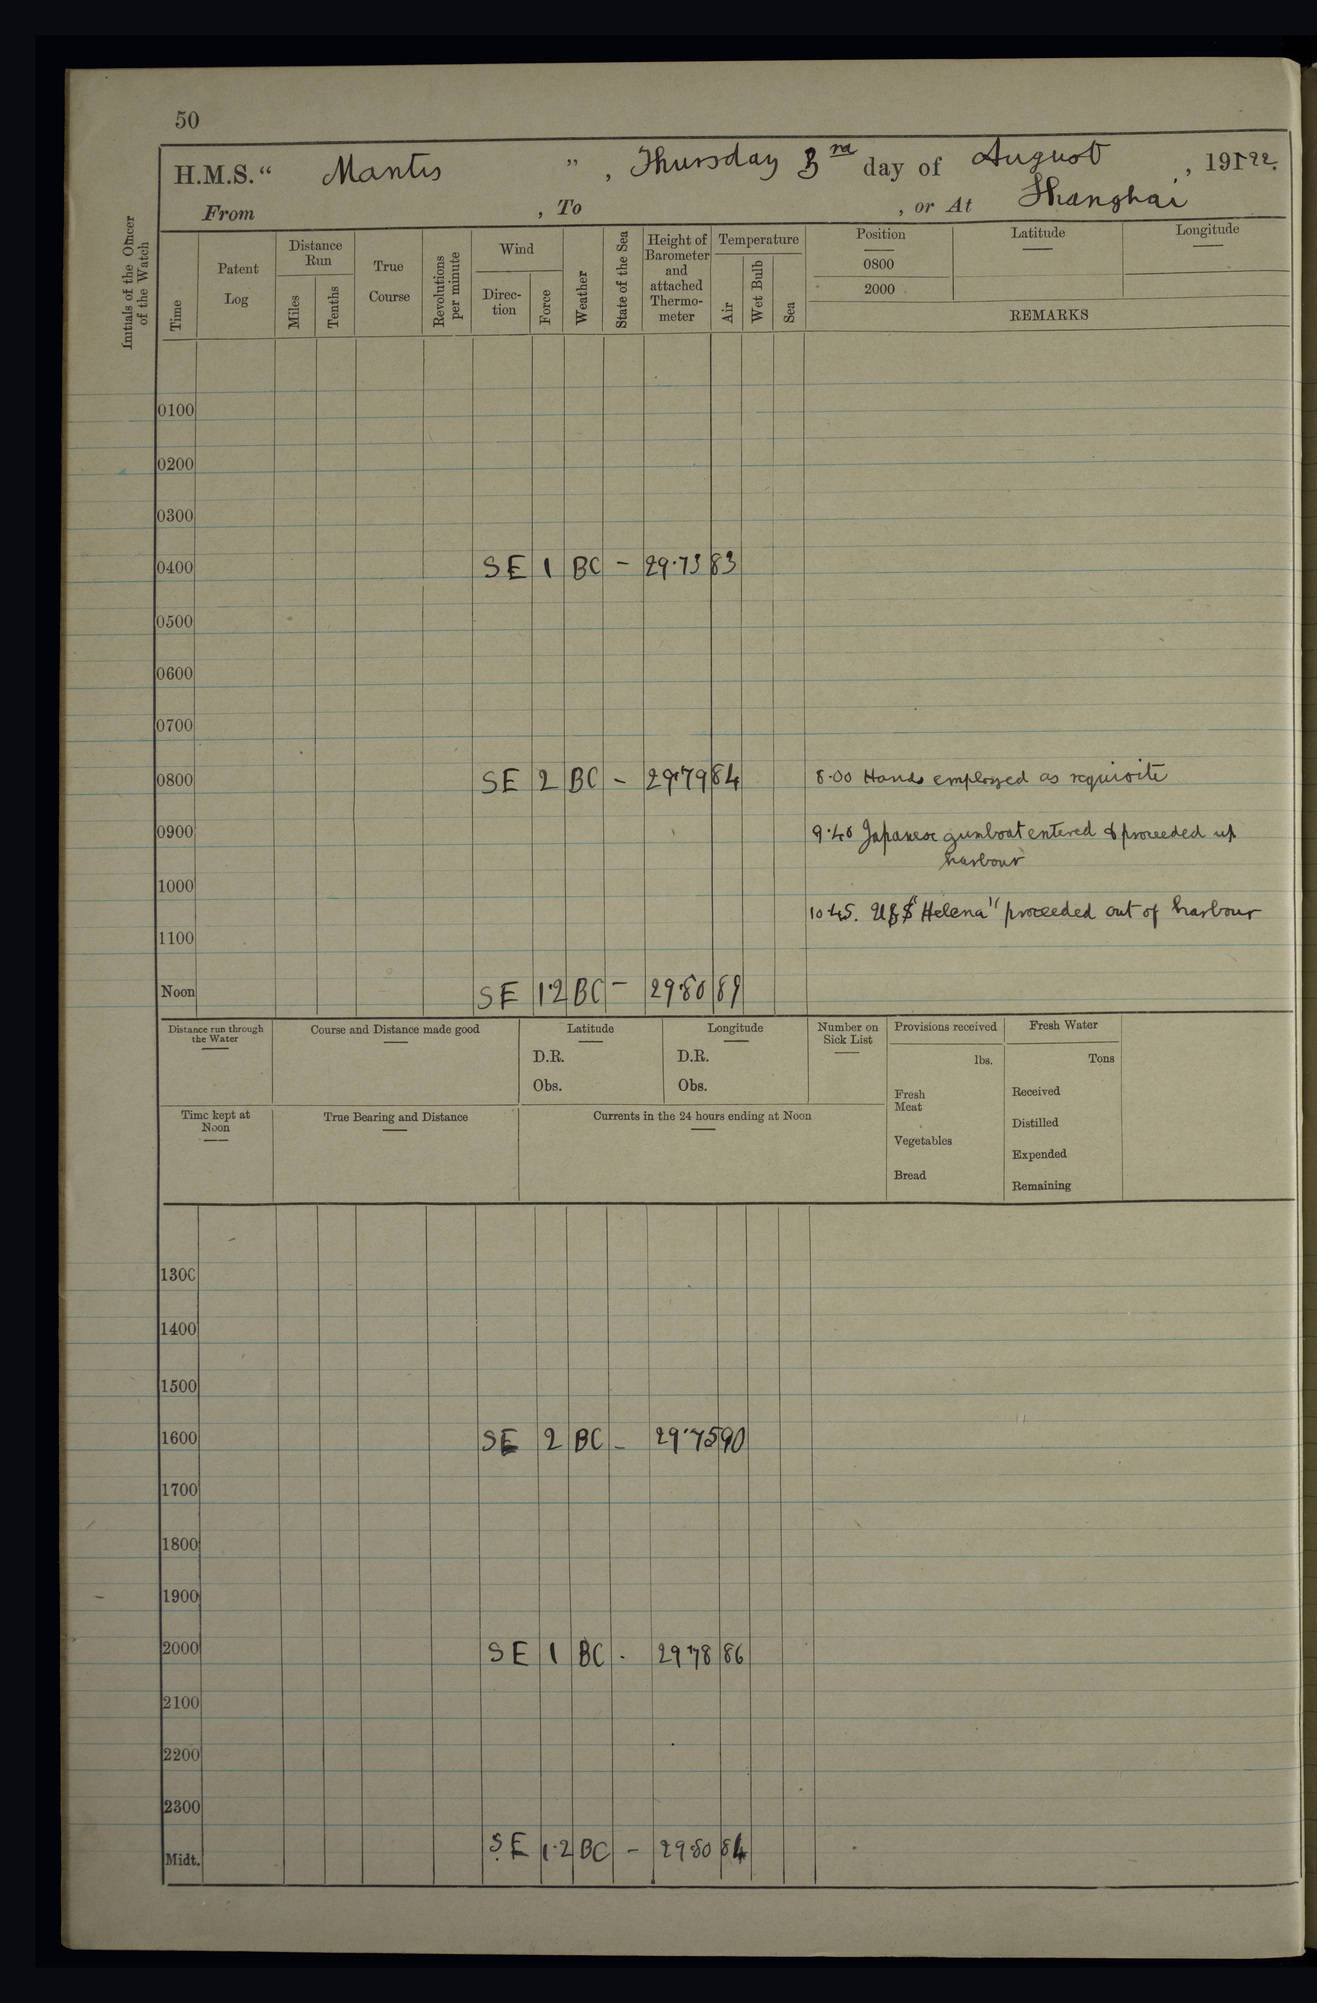 50
H.M.S. “ Mantis ”, Thursday 3rd day of August, 191922.
From , To , or At Shanghai
Initials of the Officer of the Watch
Time
Patent Log
Distance Run
Miles
Tenths
True Course
Revolutions per minute
Wind
Direction
Force
Weather
State of the Sea
Height of Barometer and attached Thermometer
Temperature
Air
Wet Bulb
Sea
Position
0800
2000
Latitude
Longitude
REMARKS
0100
0200
0300
0400 SE 1 BC – 29.73 83
0500
0600
0700
0800 SE 2 BC – 29.79 84 8.00 Hands employed as requisite
0900 9.40 Japanese gunboat entered & proceeded up
harbour
1000
10.45. USS "Helena" proceeded out of harbour
1100
Noon SE 1.2 BC – 29.80 89
Distance run through the Water
Course and Distance made good
Latitude
D.R.
Obs.
Longitude
D.R.
Obs.
Number on Sick List
Provisions received
lbs.
Fresh Meat
Vegetables
Bread
Fresh Water
Tons
Received
Distilled
Expended
Remaining
Time kept at Noon
True Bearing and Distance
Currents in the 24 hours ending at Noon
1300
1400
1500
1600 SE 2 BC – 29.75 90
1700
1800
1900
2000 SE 1 BC - 29.78 86
2100
2200
2300
Midt. SE 1.2 BC – 29.80 84